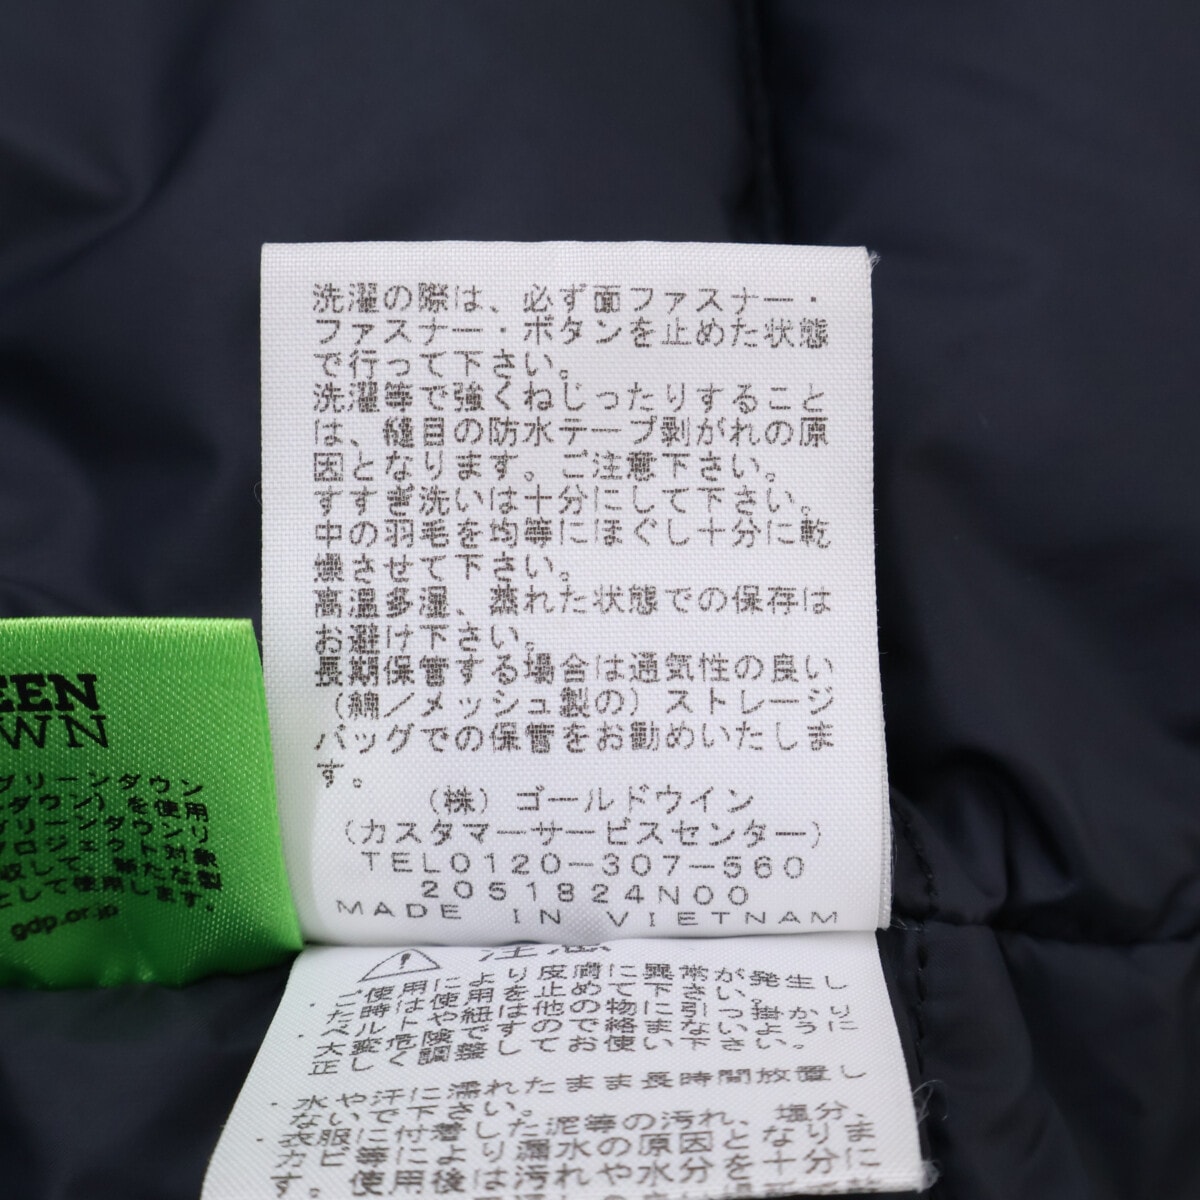 洗濯の際は、必ず面ファスナー・
ファスナー・ボタンを止めた状態
で行って下さい。
洗濯等で強くねじったりすること
は、縫目の防水テープ剥がれの原
因となります。ご注意下さい。
すすぎ洗いは十分にして下さい。
中の羽毛を均等にほぐし十分に乾
燥させて下さい。
高温多湿、蒸れた状態での保存は
お避け下さい。
長期保管する場合は通気性の良い
(綿/メッシュ製の)ストレージ
バッグでの保管をお勧めいたしま
す。
(株)ゴールドウイン
(カスタマーサービスセンター)
TEL0120-307-560
2051824N00
MADE IN VIETNAM
EEN
WN
グリーンダウン
ンダウン)を使用
グリーンダウンリ
プロジェクト対象
収して、新たな製
として使用します。
gdp.or.jp
注意
・ご使用により皮膚に異常が発生し
た時は使用を止めて下さい。
・ベルトや紐は他の物に引っ掛かり
大変危険ですので絡まないように
正しく調整してお使い下さい。
・水や汗に濡れたまま長時間放置し
ないで下さい。
・衣服に付着した泥等の汚れ、塩分、
カビ等より漏水の原因となりま
す。使用後は汚れや水分を十分に